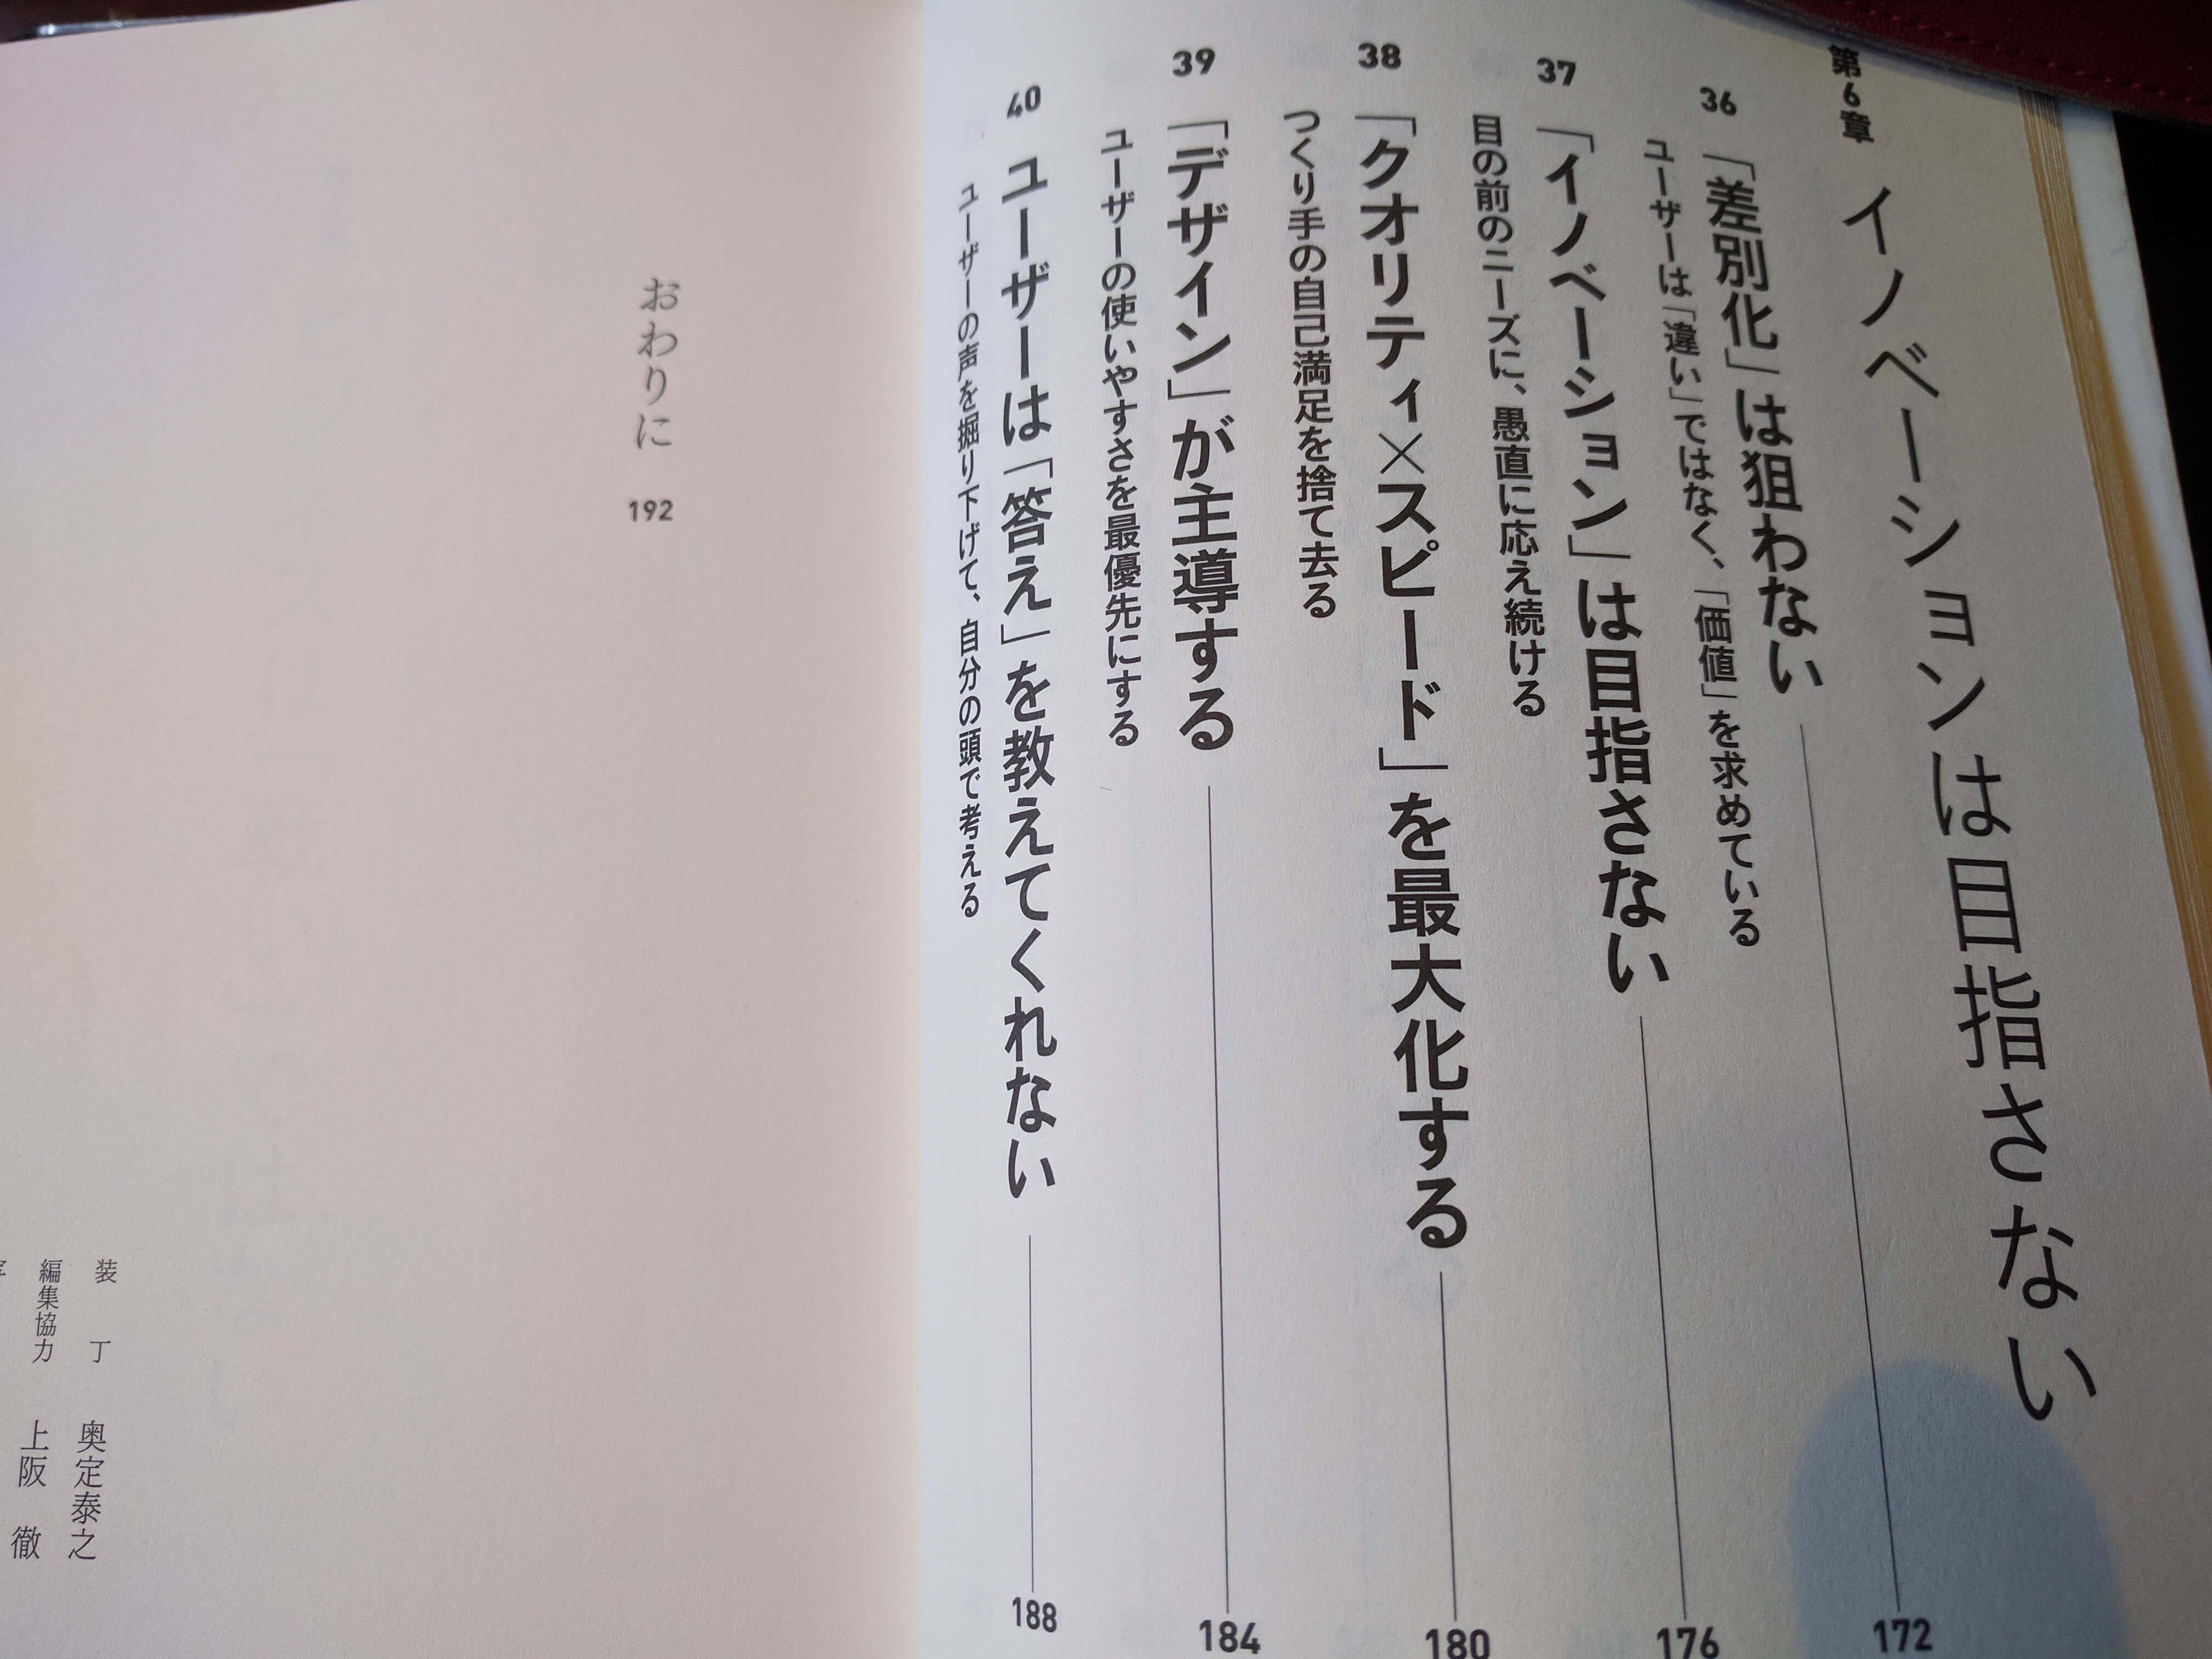 第6章 イノベーションは目指さない
36 「差別化」は狙わない 172
ユーザーは「違い」ではなく、「価値」を求めている
37 「イノベーション」は目指さない 176
目の前のニーズに、愚直に応え続ける
38 「クオリティ×スピード」を最大化する 180
つくり手の自己満足を捨て去る
39 「デザイン」が主導する 184
ユーザーの使いやすさを最優先にする
40 ユーザーは「答え」を教えてくれない 188
ユーザーの声を掘り下げて、自分の頭で考える
おわりに 192
装丁 奥定泰之
編集協力 上阪 徹